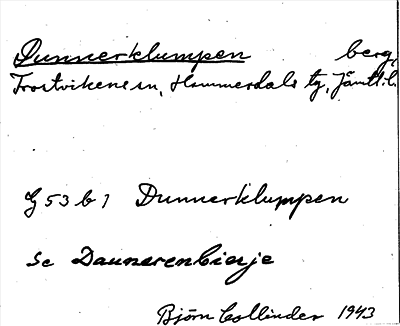 Dunnerklumpen berg,
Frostvikens sn, Hammerdals tg, Jämtl. l.
G 53 b 1 Dunnerklumpen
Se Daunerenbieje
Björn Collinder 1943